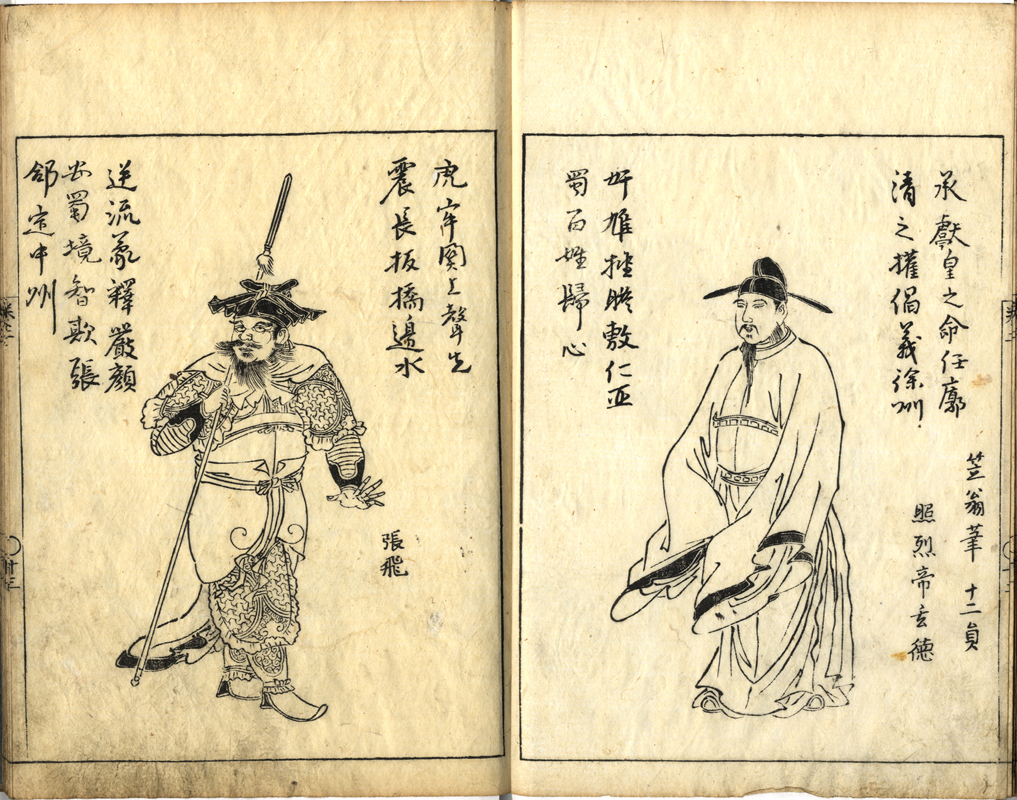 笠翁筆 十二員
承獻皇之命任廓
清之權倡義徐州
照烈帝玄德
奸雄挫膽敷仁西
蜀百姓歸心
虎牢関上聲先
震長板橋邊水
張飛
逆流義釋嚴顔
安蜀境智欺張
郃定中州
廿三